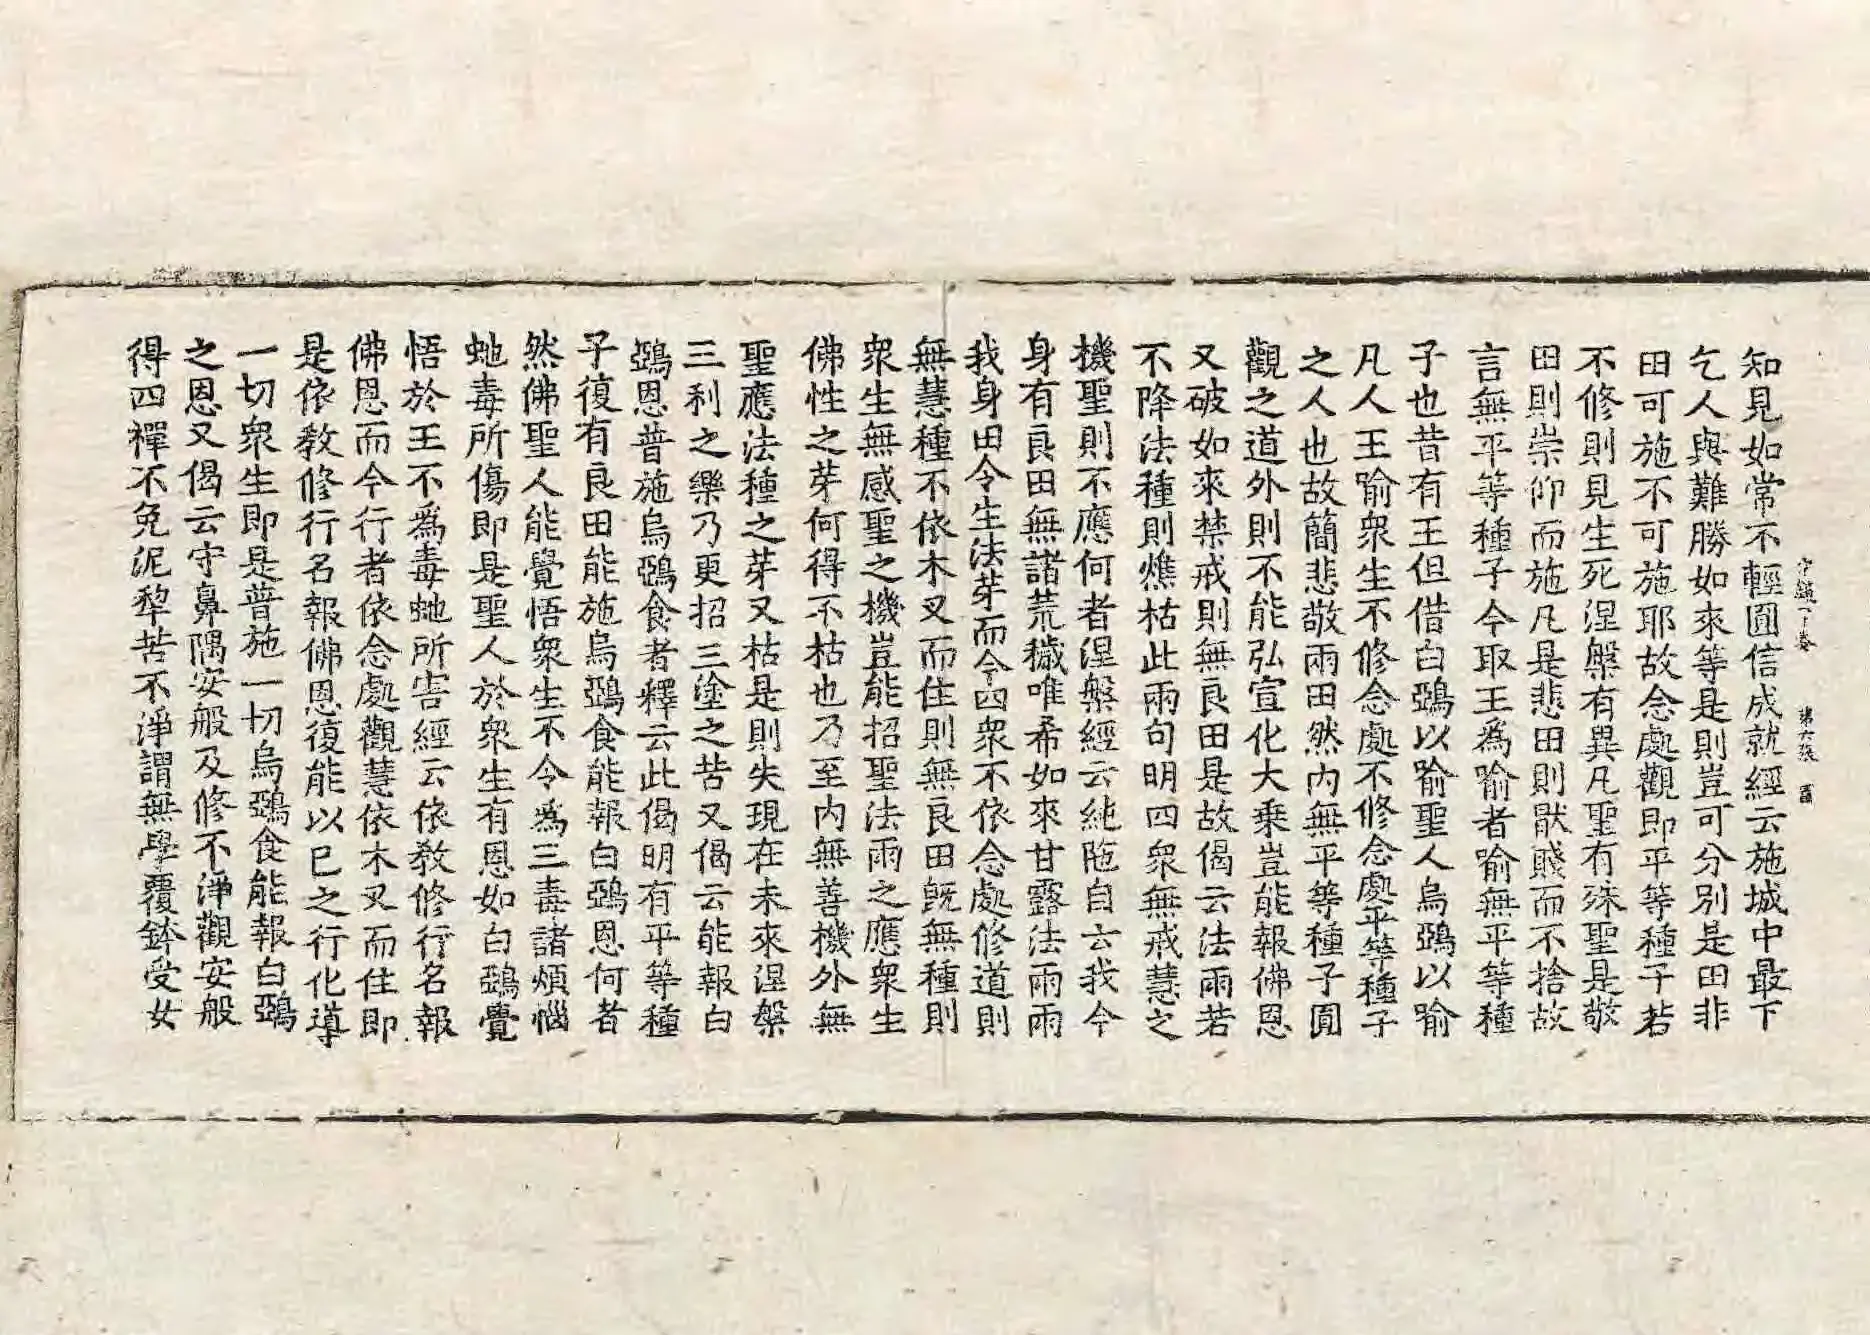 知見如常不輕圓信成就經云施城中最下
乞人與難勝如來等是則豈可分別是田非
田可施不可施耶故念處觀即平等種子若
不修則見生死涅槃有異凡聖有殊聖是敬
田則崇仰而施凡是悲田則猒賤而不捨故
言無平等種子今取王為喻者喻無平等種
子也昔有王但借白鵶以喻聖人烏鵶以喻
凡人王喻衆生不修念處不修念處平等種子
之人也故簡悲敬兩田然內無平等種子圓
觀之道外則不能弘宣化大乗豈能報佛恩
又破如來禁戒則無良田是故偈云法雨若
不降法種則燋枯此兩句明四衆無戒慧之
機聖則不應何者涅槃經云純陁自云我今
身有良田無諸荒穢唯希如來甘露法雨雨
我身田令生法芽而今四衆不依念處修道則
無慧種不依木叉而住則無良田旣無種則
衆生無感聖之機豈能招聖法雨之應衆生
佛性之芽何得不枯也乃至內無善機外無
聖應法種之芽又枯是則失現在未來涅槃
三利之樂乃更招三塗之苦又偈云能報白
鵶恩普施烏鵶食者釋云此偈明有平等種
子復有良田能施烏鵶食能報白鵶恩何者
然佛聖人能覺悟衆生不令為三毒諸煩惱
虵毒所傷即是聖人於衆生有恩如白鵶覺
悟於王不為毒虵所害經云依教修行名報
佛恩而今行者依念處觀慧依木叉而住即
是依教修行名報佛恩復能以已之行化導
一切衆生即是普施一切烏鵶食能報白鵶
之恩又偈云守鼻隅安般及修不淨觀安般
得四禪不免泥犂苦不淨謂無學覆鉢受女